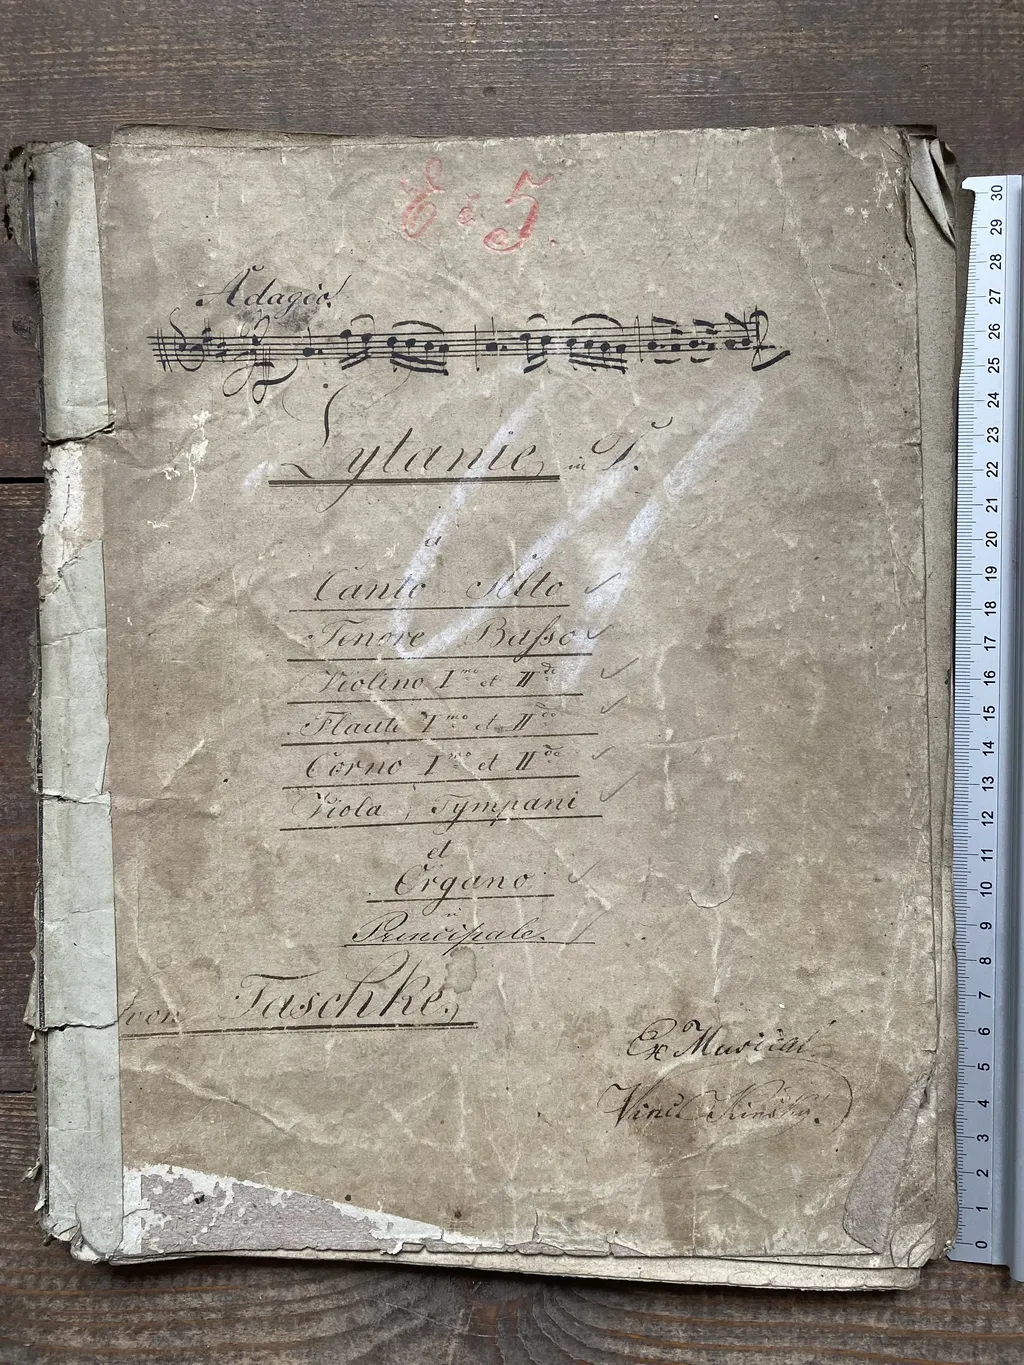 E à 5.
Adagio.
Lytanie in D.
a
Canto Alto
Tenore Basso
Violino Imo et IIdo
Flauti Imo et IIdo
Corno Imo et IIdo
Viola, Tympani
et
Organo
Principale.
von Taschke.
Ex Musical
Vinc Kinsky.
30
29
28
27
26
25
24
23
22
21
20
19
18
17
16
15
14
13
12
11
10
9
8
7
6
5
4
3
2
1
0